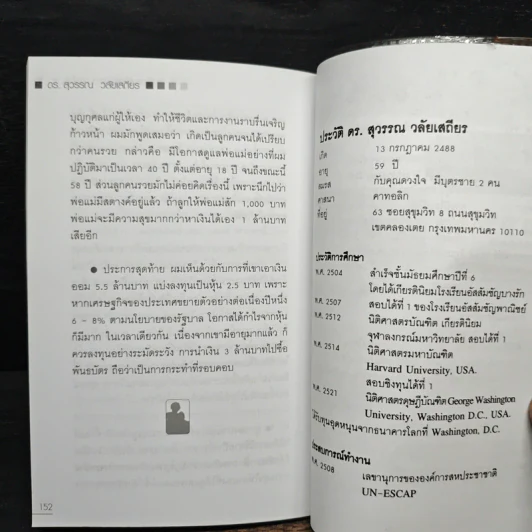 ดร. สุวรรณ วลัยเสถียร
บุญกุศลแก่ผู้ให้เอง ทำให้ชีวิตและการงานราบรื่นเจริญ
ก้าวหน้า ผมมักพูดเสมอว่า เกิดเป็นลูกคนจนได้เปรียบ
กว่าคนรวย กล่าวคือ มีโอกาสดูแลพ่อแม่อย่างที่ผม
ปฏิบัติมาเป็นเวลา 40 ปี ตั้งแต่อายุ 18 ปี จนถึงขณะนี้
58 ปี ส่วนลูกคนรวยมักไม่ค่อยคิดเรื่องนี้ เพราะนึกไปว่า
พ่อแม่มีสตางค์อยู่แล้ว ถ้าลูกให้พ่อแม่สัก 1,000 บาท
พ่อแม่จะมีความสุขมากกว่าหาเงินได้เอง 1 ล้านบาท
เสียอีก
● ประการสุดท้าย ผมเห็นด้วยกับการที่เขาเอาเงิน
ออม 5.5 ล้านบาท แบ่งลงทุนเป็นหุ้น 2.5 บาท เพราะ
หากเศรษฐกิจของประเทศขยายตัวอย่างต่อเนื่องปีหนึ่ง
6 - 8% ตามนโยบายของรัฐบาล โอกาสได้กำไรจากหุ้น
ก็มีมาก ในเวลาเดียวกัน เนื่องจากเขามีอายุมากแล้ว ก็
ควรลงทุนอย่างระมัดระวัง การนำเงิน 3 ล้านบาทไปซื้อ
พันธบัตร ถือว่าเป็นการกระทำที่รอบคอบ
152
ประวัติ ดร. สุวรรณ วลัยเสถียร
เกิด 13 กรกฎาคม 2488
อายุ 59 ปี
สมรส กับคุณดวงใจ มีบุตรชาย 2 คน
ศาสนา คาทอลิก
ที่อยู่ 63 ซอยสุขุมวิท 8 ถนนสุขุมวิท
เขตคลองเตย กรุงเทพมหานคร 10110
ประวัติการศึกษา
พ.ศ. 2504 สำเร็จชั้นมัธยมศึกษาปีที่ 6
โดยได้เกียรตินิยมโรงเรียนอัสสัมชัญบางรัก
พ.ศ. 2507 สอบได้ที่ 1 ของโรงเรียนอัสสัมชัญพาณิชย์
พ.ศ. 2512 นิติศาสตรบัณฑิต เกียรตินิยม
จุฬาลงกรณ์มหาวิทยาลัย สอบได้ที่ 1
พ.ศ. 2514 นิติศาสตรมหาบัณฑิต
Harvard University, USA.
สอบชิงทุนได้ที่ 1
พ.ศ. 2521 นิติศาสตรดุษฎีบัณฑิต George Washington
University, Washington D.C., USA.
ได้รับทุนอุดหนุนจากธนาคารโลกที่ Washington, D.C.
ประสบการณ์ทำงาน
พ.ศ. 2508 เลขานุการขององค์การสหประชาชาติ
UN-ESCAP